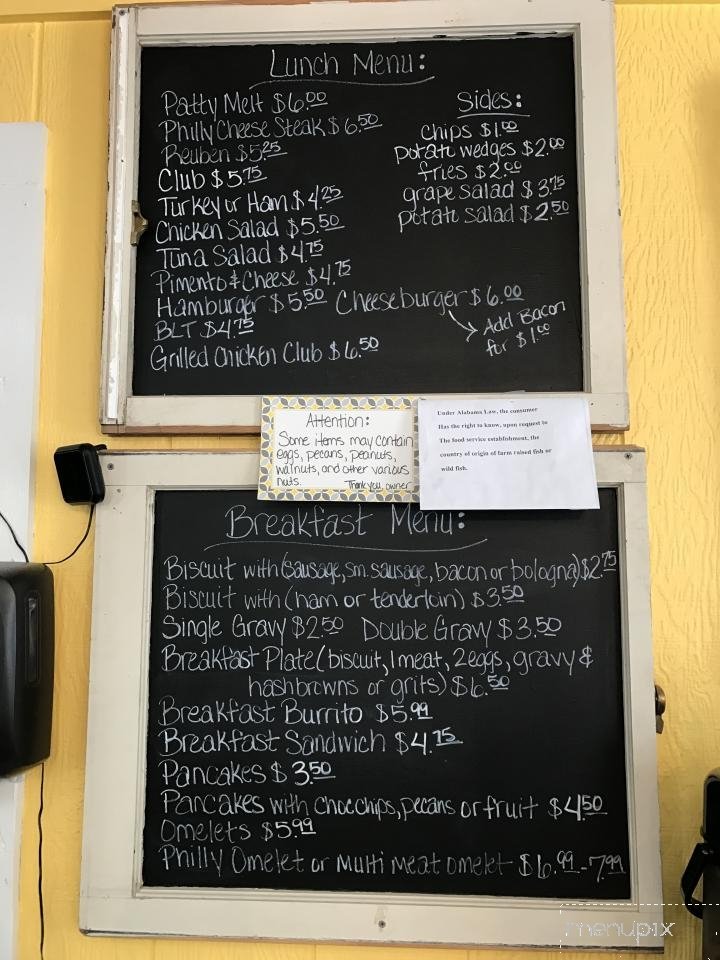 Lunch Menu:
Patty Melt $6.00
Philly Cheese Steak $6.50
Reuben $5.25
Club $5.75
Turkey or Ham $4.25
Chicken Salad $5.50
Tuna Salad $4.75
Pimento & Cheese $4.75
Hamburger $5.50 Cheeseburger $6.00
Add Bacon
for $1.00
BLT $4.75
Grilled Chicken Club $6.50
Sides:
chips $1.00
potato wedges $2.00
fries $2.00
grape salad $3.75
potato salad $2.50
Attention:
Some items may contain
eggs, pecans, peanuts,
walnuts, and other various
nuts. Thank you, owner
Under Alabama Law, the consumer
Has the right to know, upon request to
The food service establishment, the
country of origin of farm raised fish or
wild fish.
Breakfast Menu:
Biscuit with (sausage, sm. sausage, bacon or bologna) $2.75
Biscuit with (ham or tenderloin) $3.50
Single Gravy $2.50 Double Gravy $3.50
Breakfast Plate (biscuit, 1 meat, 2 eggs, gravy &
hashbrowns or grits) $6.50
Breakfast Burrito $5.99
Breakfast Sandwich $4.75
Pancakes $3.50
Pancakes with chocchips, pecans or fruit $4.50
Omelets $5.99
Philly Omelet or Multi Meat omelet $6.99-7.99
menupix